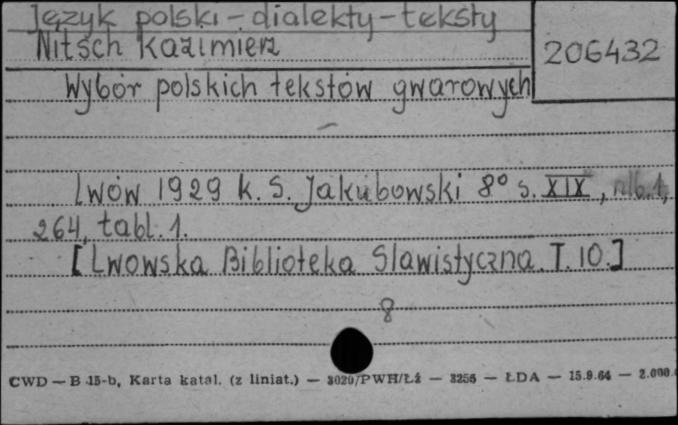 Język polski - dialekty - teksty
Nitsch Kazimierz
206432
Wybór polskich tekstów gwarowych
Lwów 1929 K. S. Jakubowski 8° s. XIX, nlb. 1,
264, tabl. 1.
[Lwowska Biblioteka Slawistyczna. T. 10.]
8
CWD — B 15-b, Karta katal. (z liniat.) — 3029/PWH/Łź — 3256 — ŁDA — 15.9.64 — 2.000.